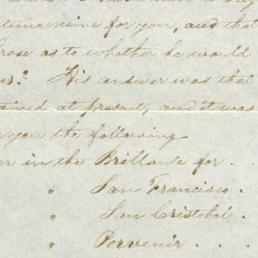 for you, and that
rose as to whether he would
? His answer was that
at present, and it was
upon you the following
in the Brillante for . .
" San Francisco .
" San Cristobal .
" Porvenir . . .